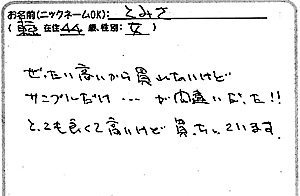 お名前(ニックネームOK): とみさ
(東京 在住 44 歳、性別: 女 )
ぜったい高いから買いたいけど
サンプルだけ … が間違いだった!!
とっても良くて高いけど買っています。